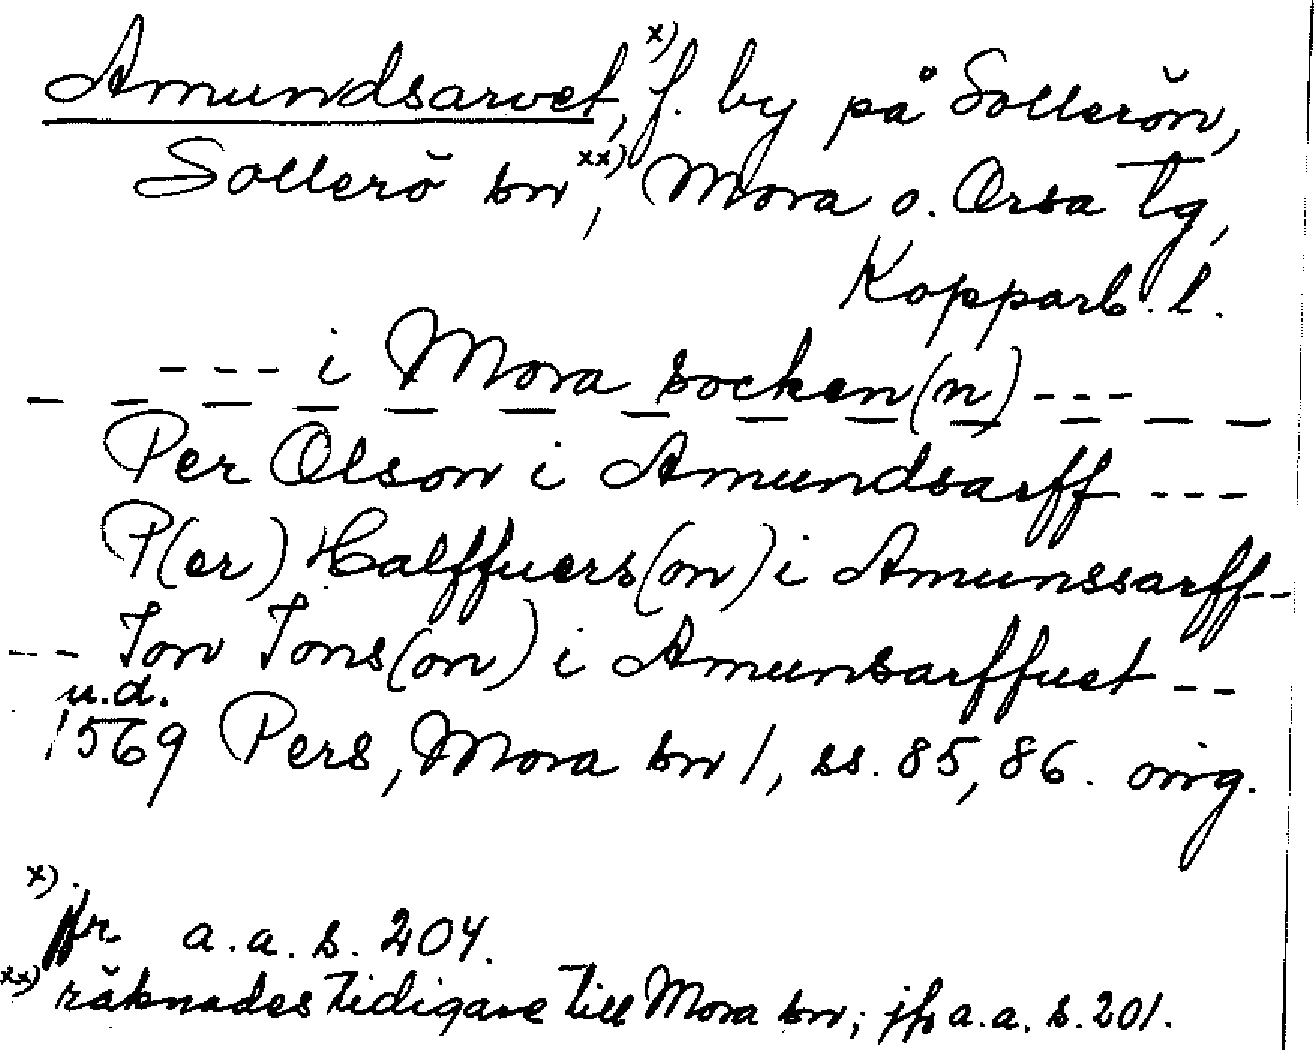 Amundsarvet,x) f. by på Sollerön,
Sollerö sn xx), Mora o. Orsa tg,
Kopparb. l.
--- i Mora socken(n) ---
Per Olson i Amundsarff ---
P(er) Halffuers(on) i Amunssarff --
--- Jon Jons(on) i Amunsarffuet --
u.d.
1569 Pers, Mora sn 1, ss. 85, 86. orig.
x) jfr a.a. s. 204.
xx) räknades tidigare till Mora sn; jfr a.a. s. 201.